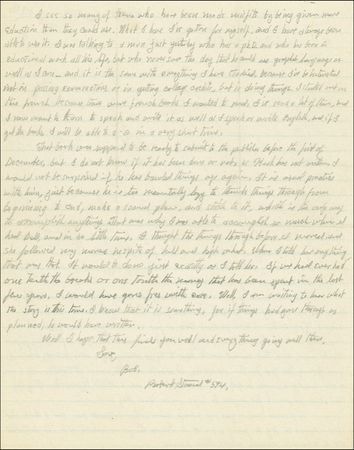 I see so many of these who have been made misfits by being given more
education than they could use. What I have I've gotten for myself, and I have always been
able to use it. I was talking to a man just yesterday who has a
educational work all his life, but who never saw the day that he could use language as
well as I can and it is the same with everything I have studied because I'm interested
not in passing examinations or in getting college credit, but in doing things. I
French because there were French books I wanted to read;
may want them to speak and write it as well as I speak or write English, and if I
get the books I will be able to do so in a very short time.
That book was supposed to be ready to submit to the publisher before the first of
December, but I do not know if it has been done or not.
would not be surprised if he has bungled things up again. It is usual practice
with him, just because he is too mentally lazy to think things through from
beginning to end, make a sound plan, and stick to it, which is the only way
to accomplish anything. That was why I was able to accomplish so much when I
had little, and in so little time. I thought the things through before I moved and
she followed my moves in spite of hell and high water. When I told her anything
that was that. It wanted to done just exactly as I told her. If we had ever had
one tenth the breaks or one tenth the money that has been spent in the last
few years, I would have gone free with ease. Well, I am waiting to hear what
the story is this time. I know that it is something, for if things had gone through as
planned, he would have written.
Well I hope that this finds you well and everything going well there.
Love,
Bob.
Robert Stroud #594,